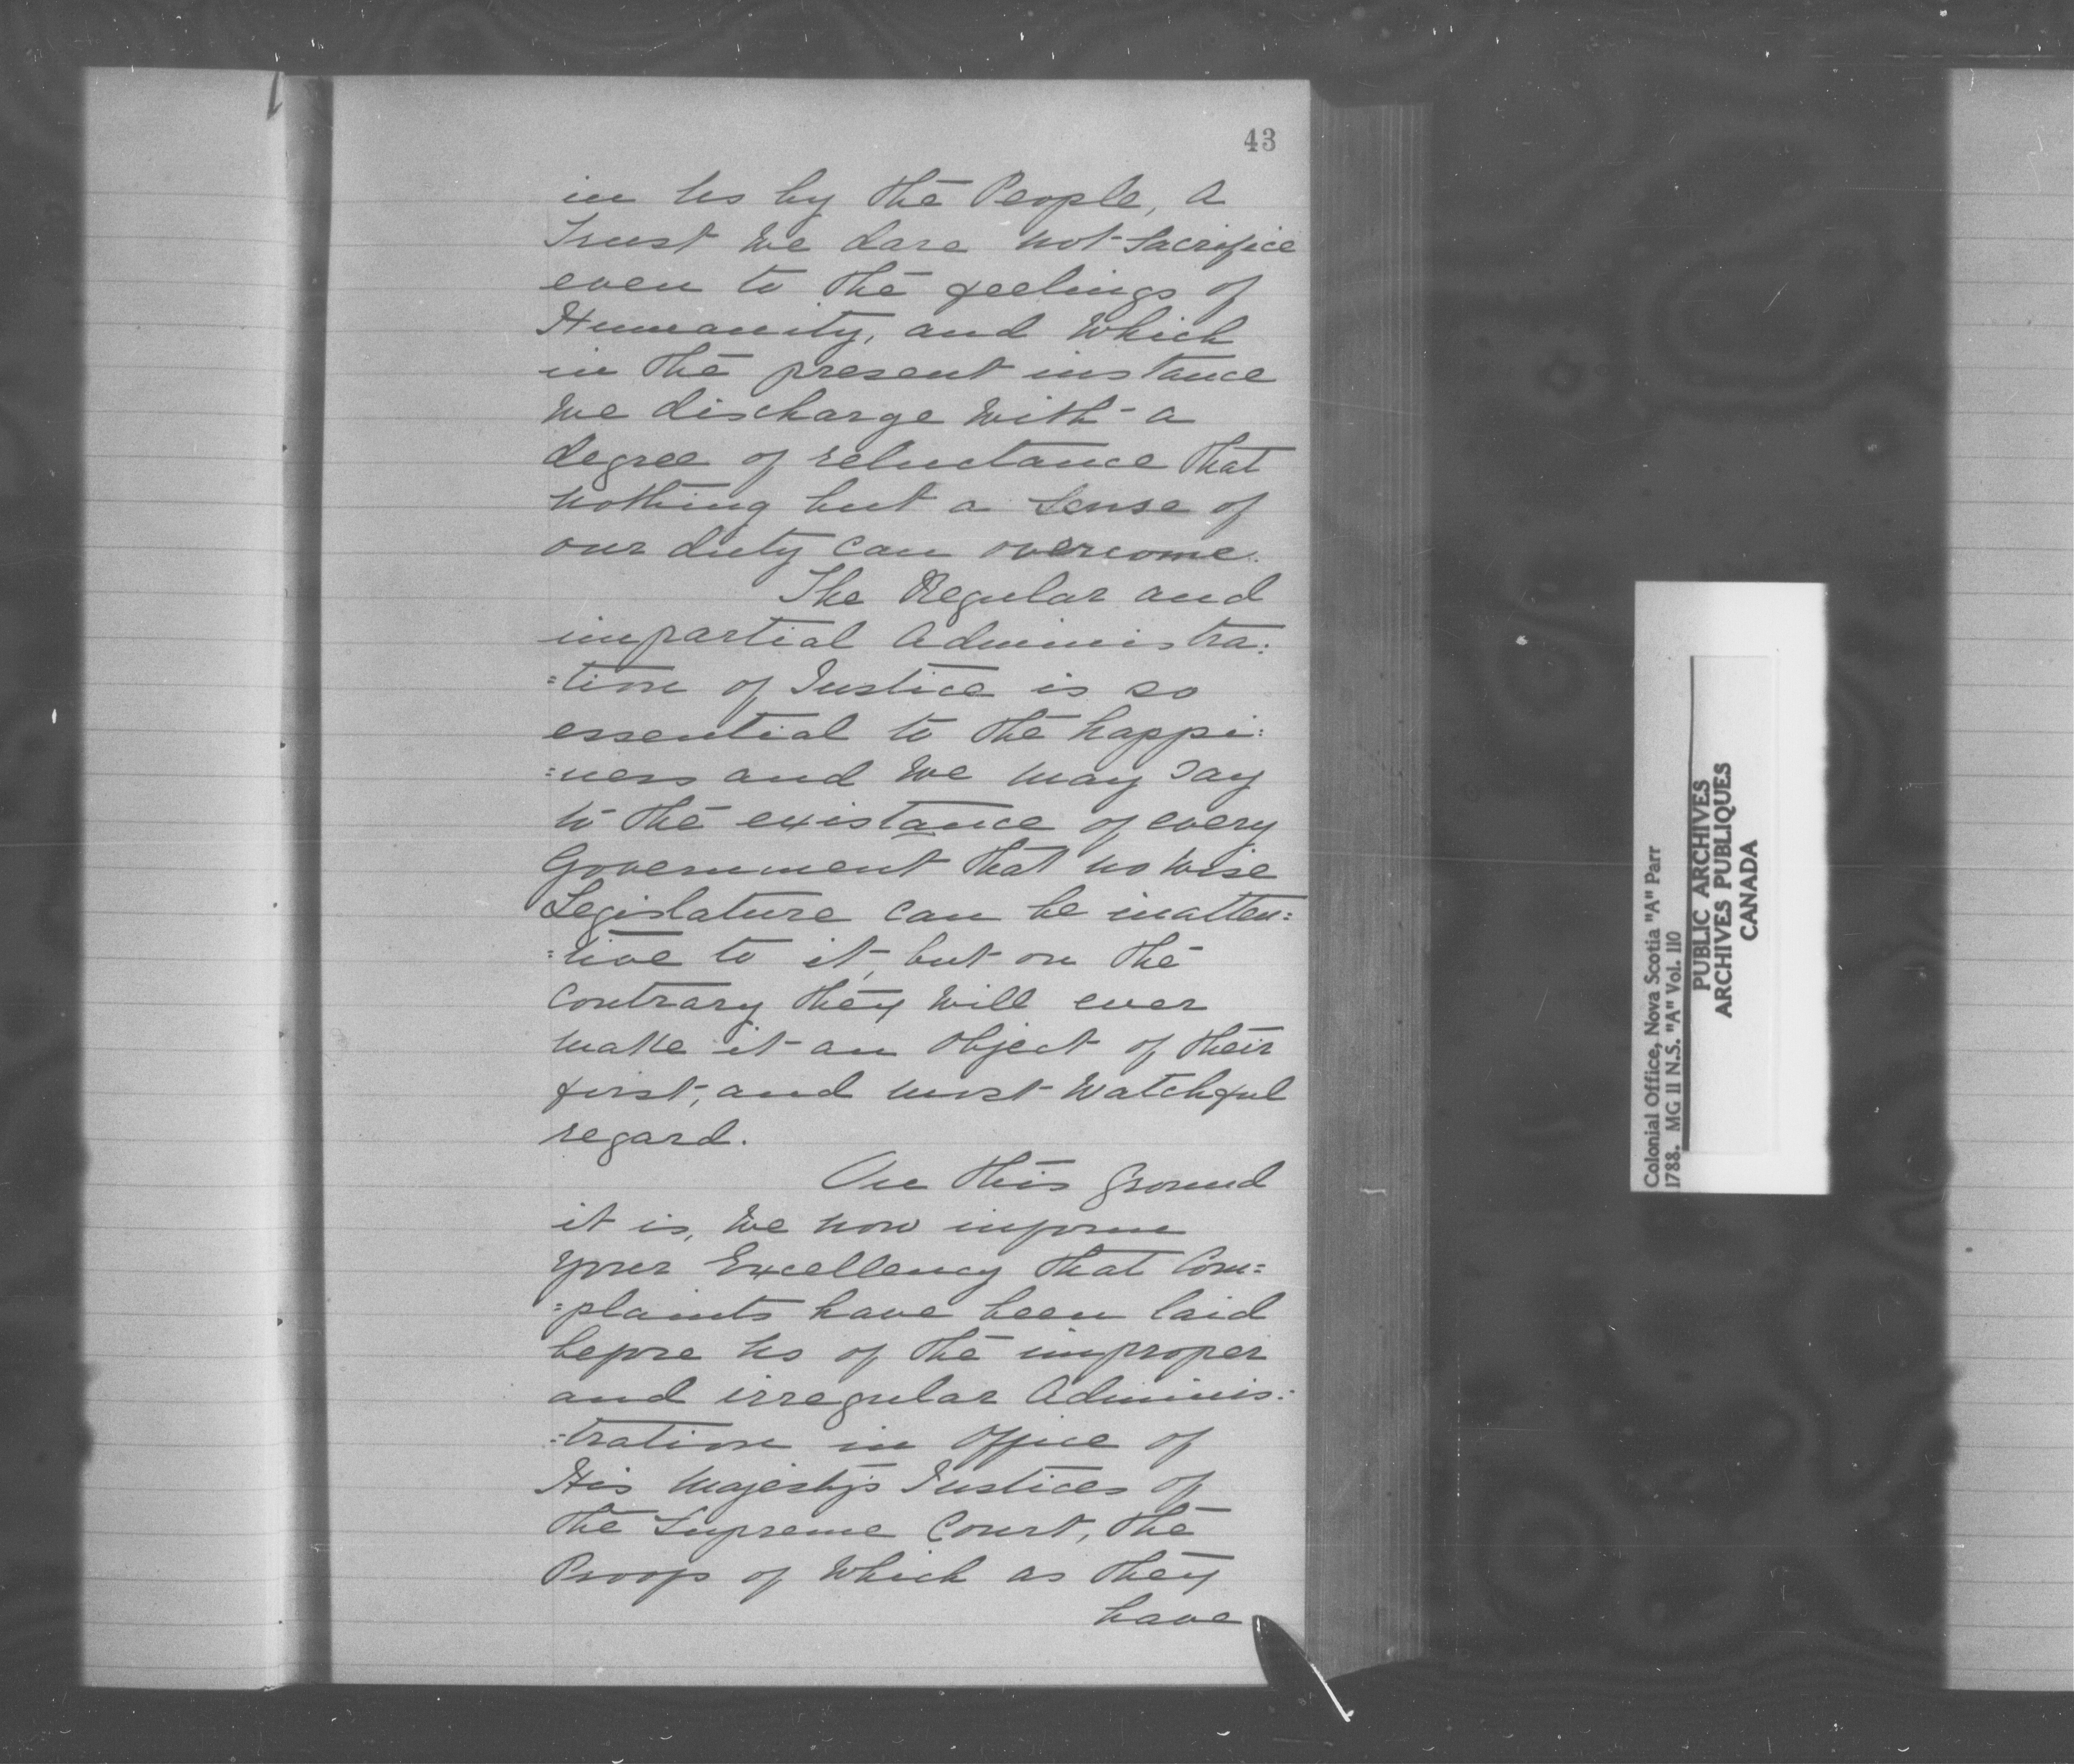 43
in us by the People, a
Trust we dare not Sacrifice
even to the feelings of
Humanity, and which
in the present instance
we discharge with a
degree of reluctance that
nothing but a Sense of
our duty can overcome.
The Regular and
impartial Administra:
:tion of Justice is so
essential to the happi:
:ness and we may say
to the existance of every
Government that no wise
Legislature can be inatten:
:tive to it, but on the
contrary they will ever
make it an object of their
first, and most watchful
regard.
On this ground
it is, we now inform
your Excellency that Com:
:plaints have been laid
before us of the improper
and irregular Adminis:
:tration in office of
His Majesty's Justices of
the Supreme Court, the
Proofs of which as they
have
Colonial Office, Nova Scotia "A" Parr
1788. MG 11 N.S. "A" Vol. 110
PUBLIC ARCHIVES
ARCHIVES PUBLIQUES
CANADA